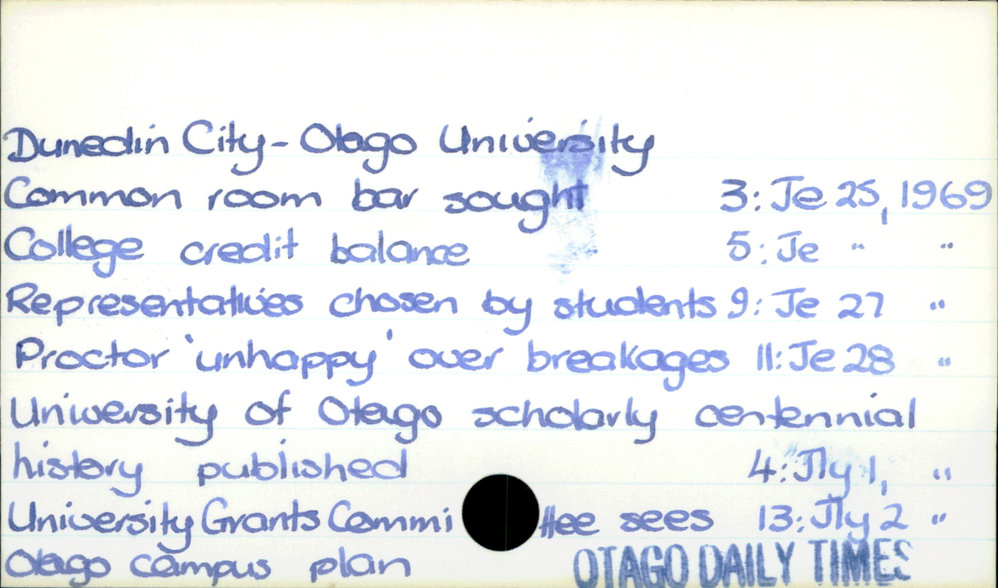 Dunedin City - Otago University
Common room bar sought 3: Je 25, 1969
College credit balance 5: Je " "
Representatives chosen by students 9: Je 27 "
Proctor 'unhappy' over breakages 11: Je 28 "
University of Otago scholarly centennial
history published 4: Jly 1, "
University Grants Committee sees 13: Jly 2 "
Otago campus plan OTAGO DAILY TIMES